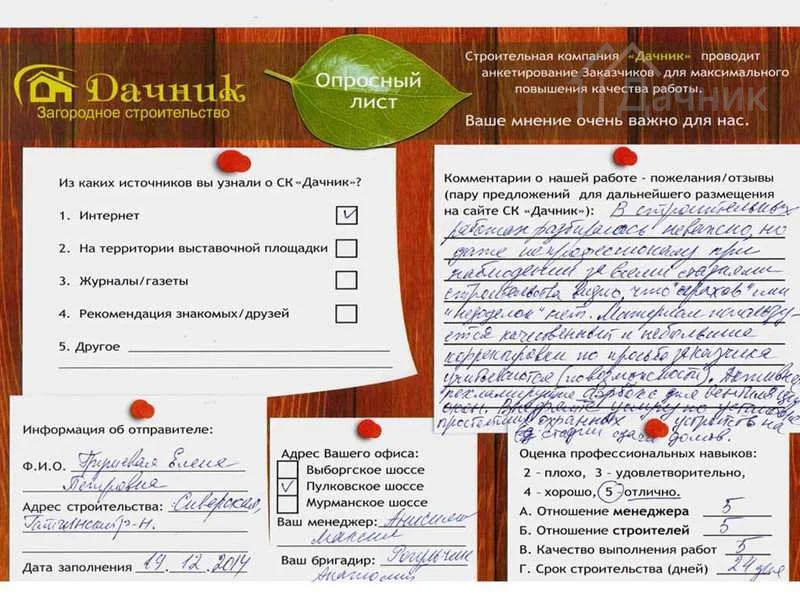 Дачник
Загородное строительство
Опросный
лист
Строительная компания «Дачник» проводит
анкетирование Заказчиков для максимального
повышения качества работы.
Ваше мнение очень важно для нас.
Дачник
Из каких источников вы узнали о СК «Дачник»?
1. Интернет
2. На территории выставочной площадки
3. Журналы/газеты
4. Рекомендация знакомых/друзей
5. Другое
Комментарии о нашей работе - пожелания/отзывы
(пару предложений для дальнейшего размещения
на сайте СК «Дачник»): В строительных
работах разбираюсь неважно, но
даже непрофессионалу при
наблюдении за всеми стадиями
строительства видно, что "огрехов" или
"недоделок" нет. Материал использу-
ется качественный и небольшие
корректировки по просьбе заказчика
учитываются (по возможности). Активнее
рекламируйте для
окон. Внедряйте услугу по установке
простейших охранных устройств на
стадии сдачи домов.
Информация об отправителе:
Ф.И.О. Елена
Петровна
Адрес строительства: Сиверская,
Гатчинский р-н.
Дата заполнения 19.12.2014
Адрес Вашего офиса:
Выборгское шоссе
Пулковское шоссе
Мурманское шоссе
Ваш менеджер:
Максим
Ваш бригадир:
Анатолий
Оценка профессиональных навыков:
2 - плохо, 3 - удовлетворительно,
4 - хорошо, 5 - отлично.
А. Отношение менеджера 5
Б. Отношение строителей 5
В. Качество выполнения работ 5
Г. Срок строительства (дней) 24 дня